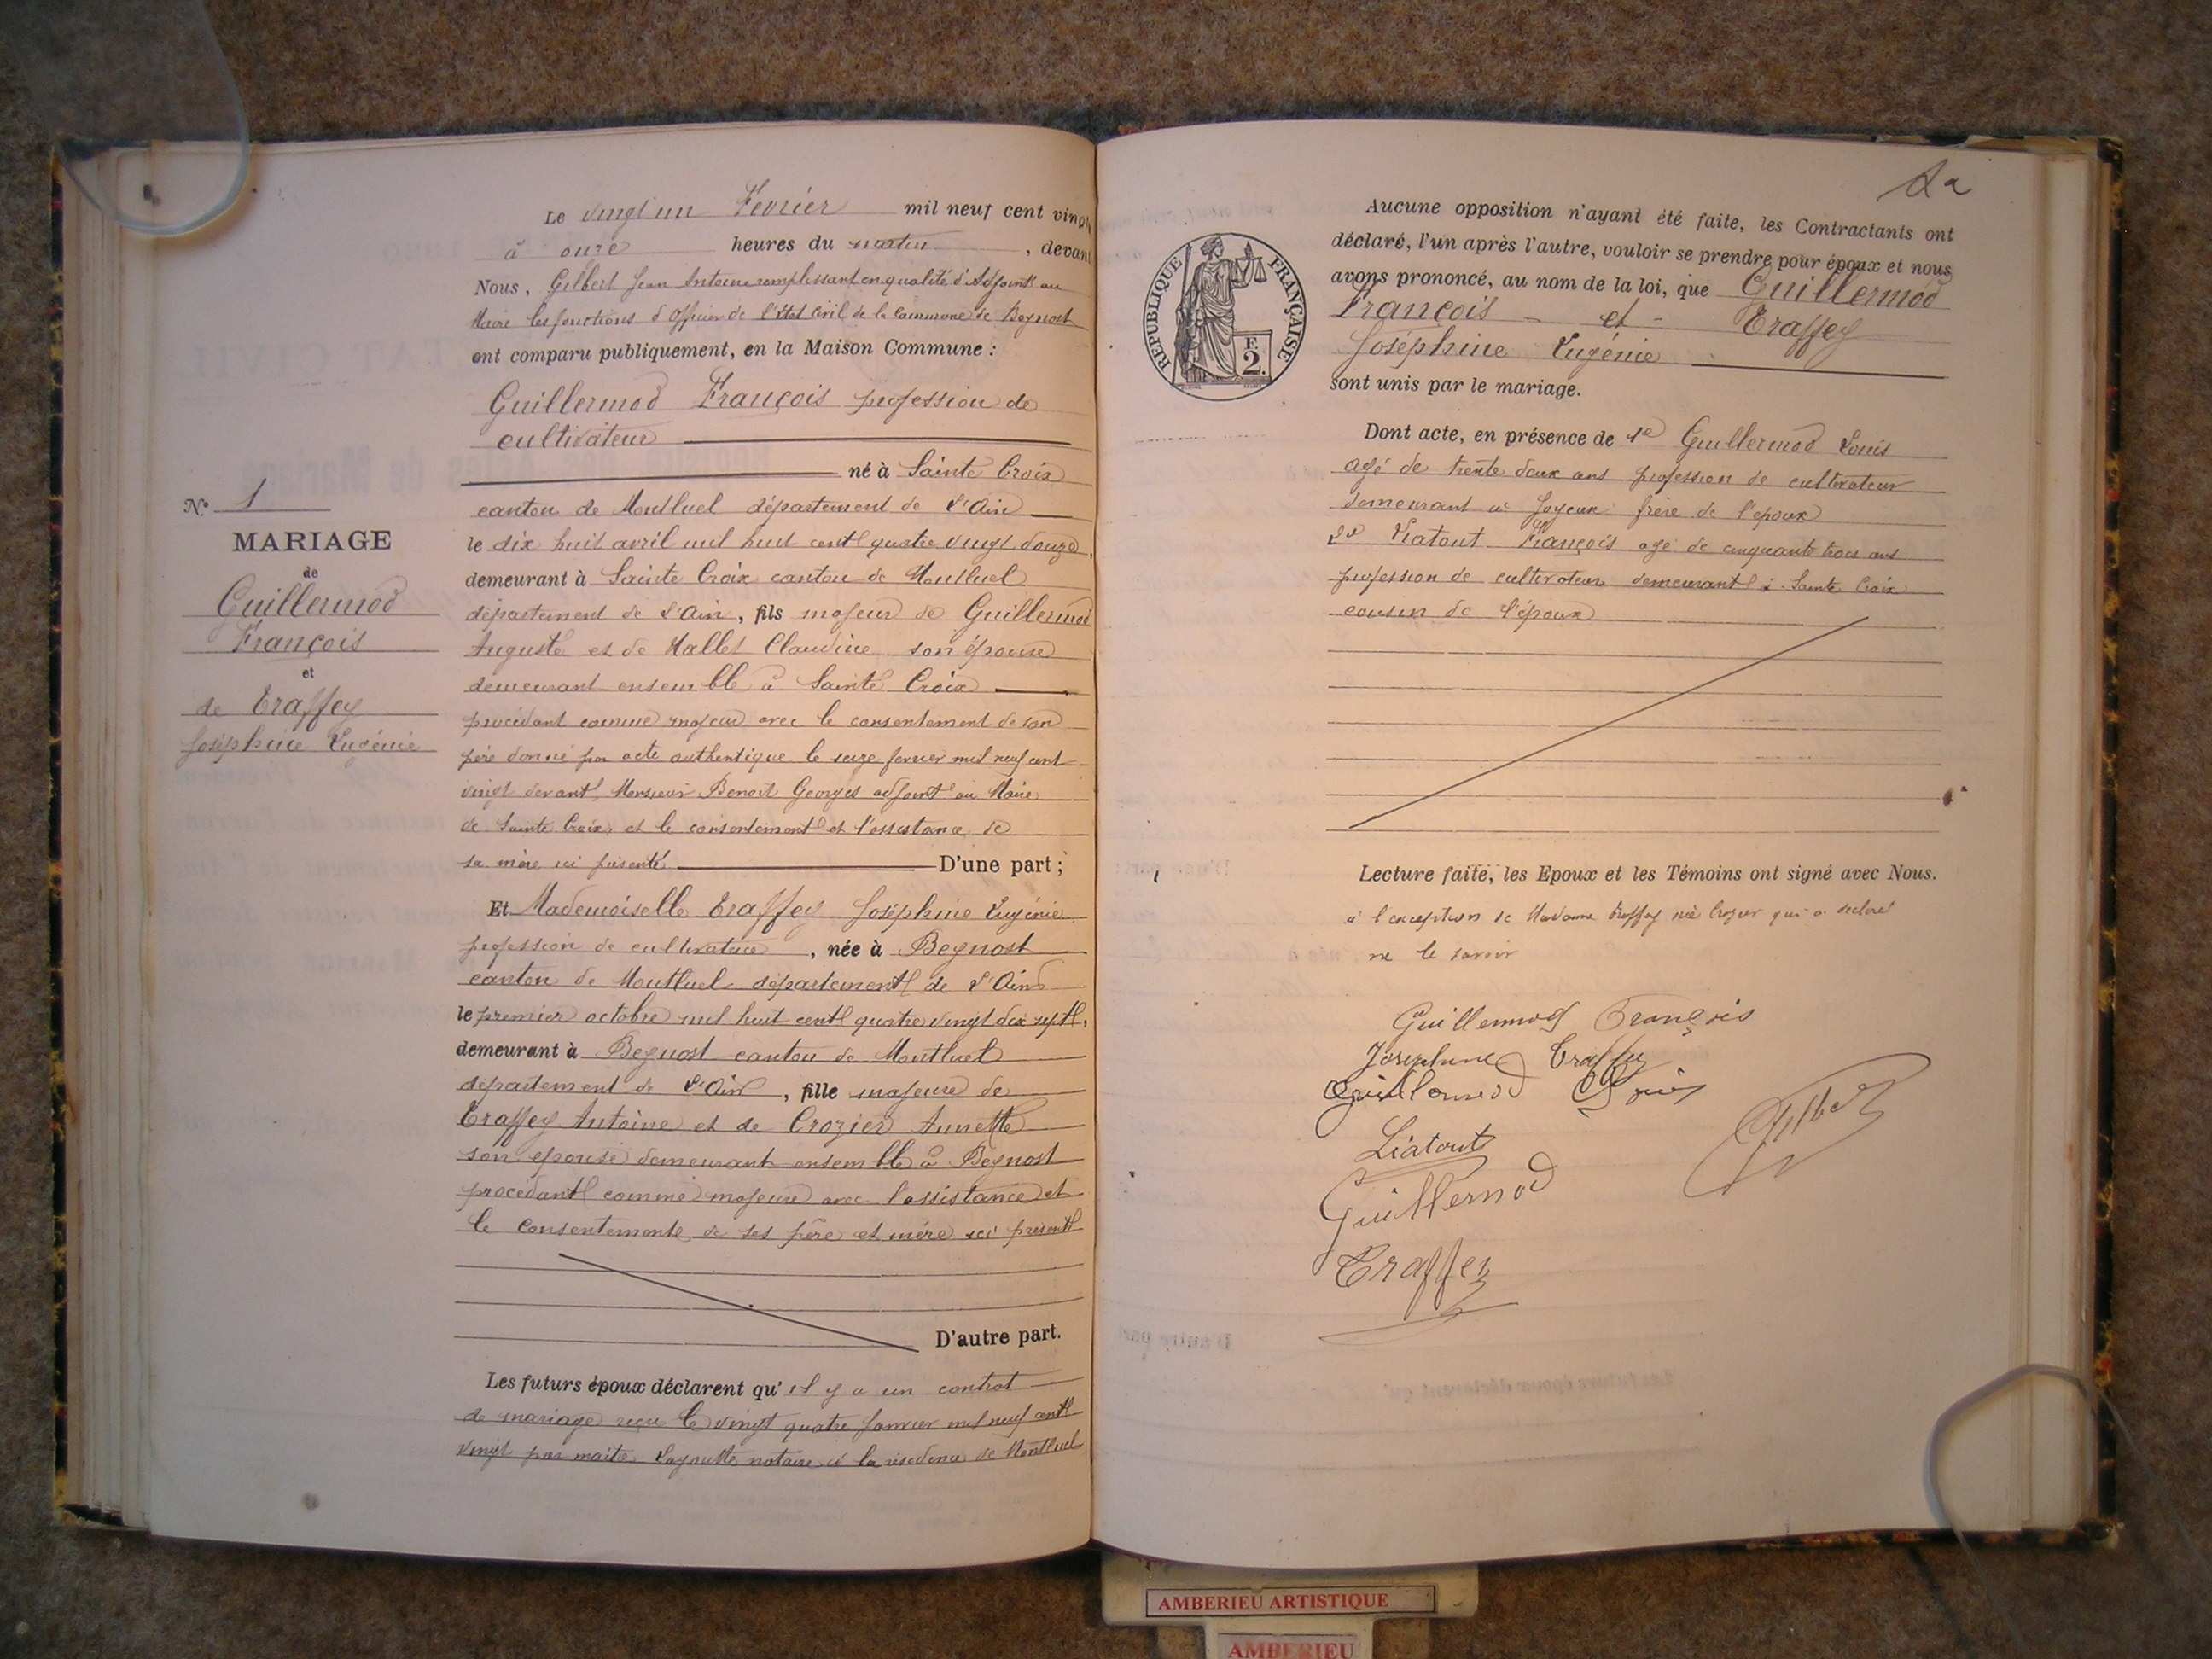 Le vingt un Février mil neuf cent vingt
à onze heures du matin, devant
Nous, Gilbert Jean Antoine remplissant en qualité d'Adjoint au
Maire les fonctions d'Officier de l'Etat Civil de la Commune de Beynost
ont comparu publiquement, en la Maison Commune :
Guillermod François profession de
cultivateur
né à Sainte Croix
canton de Montluel département de l'Ain
le dix huit avril mil huit cent quatre vingt douze,
demeurant à Sainte Croix canton de Montluel
département de l'Ain, fils majeur de Guillermod
Auguste et de Mallet Claudine son épouse
demeurant ensemble à Sainte Croix
procédant comme majeur avec le consentement de son
père donné par acte authentique le seize fevrier mil neuf cent
vingt devant Monsieur Benoit Georges adjoint au Maire
de Sainte Croix, et le consentement et l'assistance de
sa mère ici présente D'une part ;
N° 1
MARIAGE
de
Guillermod
François
et
de Traffey
Joséphine Eugénie
Et Mademoiselle Traffey Joséphine Eugénie
profession de cultivatrice, née à Beynost
canton de Montluel département de l'Ain
le premier octobre mil huit cent quatre vingt dix sept,
demeurant à Beynost canton de Montluel
département de l'Ain, fille majeure de
Traffey Antoine et de Crozier Annette
son épouse demeurant ensemble à Beynost
procédant comme majeure avec l'assistance et
le consentement de ses père et mère ici présents
D'autre part.
Les futurs époux déclarent qu'il y a un contrat
de mariage reçu le vingt quatre Janvier mil neuf cent
vingt par maitre notaire à la résidence de Montluel
Aucune opposition n'ayant été faite, les Contractants ont
déclaré, l'un après l'autre, vouloir se prendre pour époux et nous
avons prononcé, au nom de la loi, que Guillermod
François - et - Traffey
Joséphine Eugénie
sont unis par le mariage.
RÉPUBLIQUE FRANÇAISE
F.
2.
Dont acte, en présence de 1e Guillermod Louis
agé de trente deux ans profession de cultivateur
demeurant à Joyeux frère de l'époux
2e Liatout François agé de cinquante trois ans
profession de cultivateur demeurant à Sainte Croix
cousin de l'époux
Lecture faite, les Epoux et les Témoins ont signé avec Nous.
à l'exception de Madame Traffey née Crozier qui a déclaré
ne le savoir
Guillermod François
Joséphine Traffey
Guillermod Louis
Gilbert
Liatout
Guillermod
Traffey
AMBERIEU ARTISTIQUE
AMBERIEU